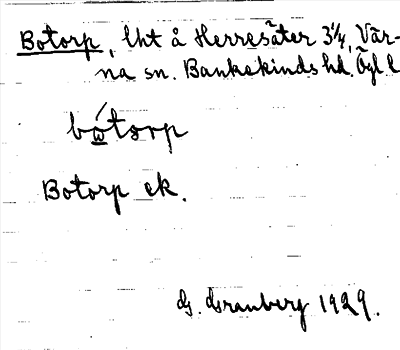 Botorp, lht å Herresäter 3¼, Vär-
na sn. Bankekinds hd. Ögl. l
bo̲torp
Botorp ek.
G. Granberg 1929.